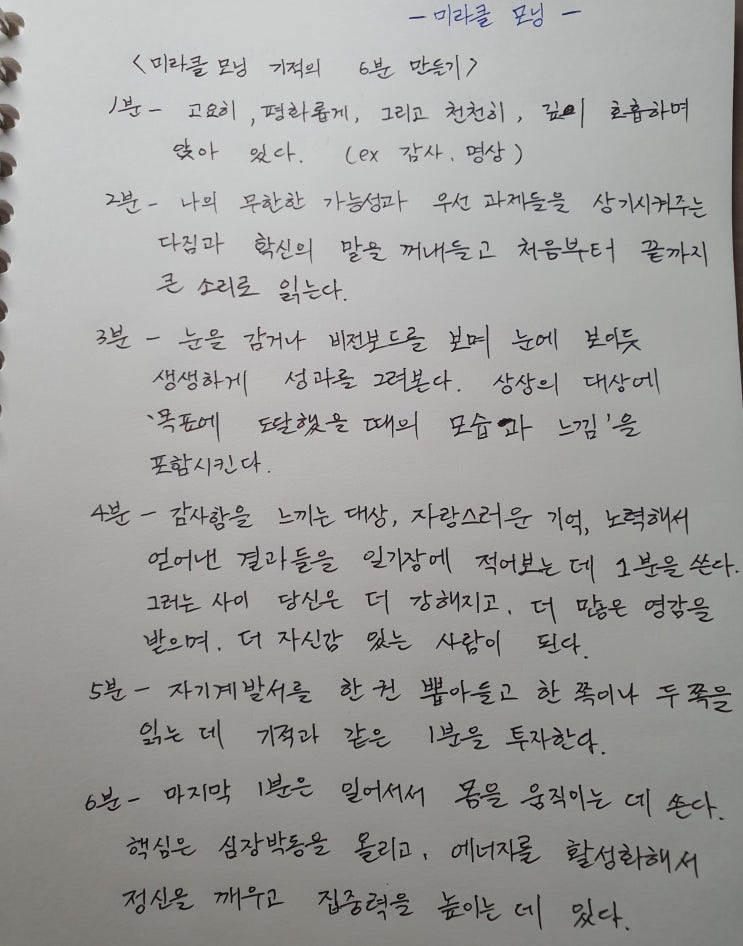 - 미라클 모닝 -
<미라클 모닝 기적의 6분 만들기>
1분 - 고요히, 평화롭게, 그리고 천천히, 깊이 호흡하며
앉아 있다. (ex 감사, 명상)
2분 - 나의 무한한 가능성과 우선 과제들을 상기시켜주는
다짐과 확신의 말을 꺼내들고 처음부터 끝까지
큰 소리로 읽는다.
3분 - 눈을 감거나 비전보드를 보며 눈에 보이듯
생생하게 성과를 그려본다. 상상의 대상에
'목표에 도달했을 때의 모습과 느낌'을
포함시킨다.
4분 - 감사함을 느끼는 대상, 자랑스러운 기억, 노력해서
얻어낸 결과들을 일기장에 적어보는 데 1분을 쓴다.
그러는 사이 당신은 더 강해지고, 더 많은 영감을
받으며, 더 자신감 있는 사람이 된다.
5분 - 자기계발서를 한 권 뽑아들고 한 쪽이나 두 쪽을
읽는 데 기적과 같은 1분을 투자한다.
6분 - 마지막 1분은 일어서서 몸을 움직이는 데 쓴다.
핵심은 심장박동을 올리고, 에너자를 활성화해서
정신을 깨우고 집중력을 높이는 데 있다.